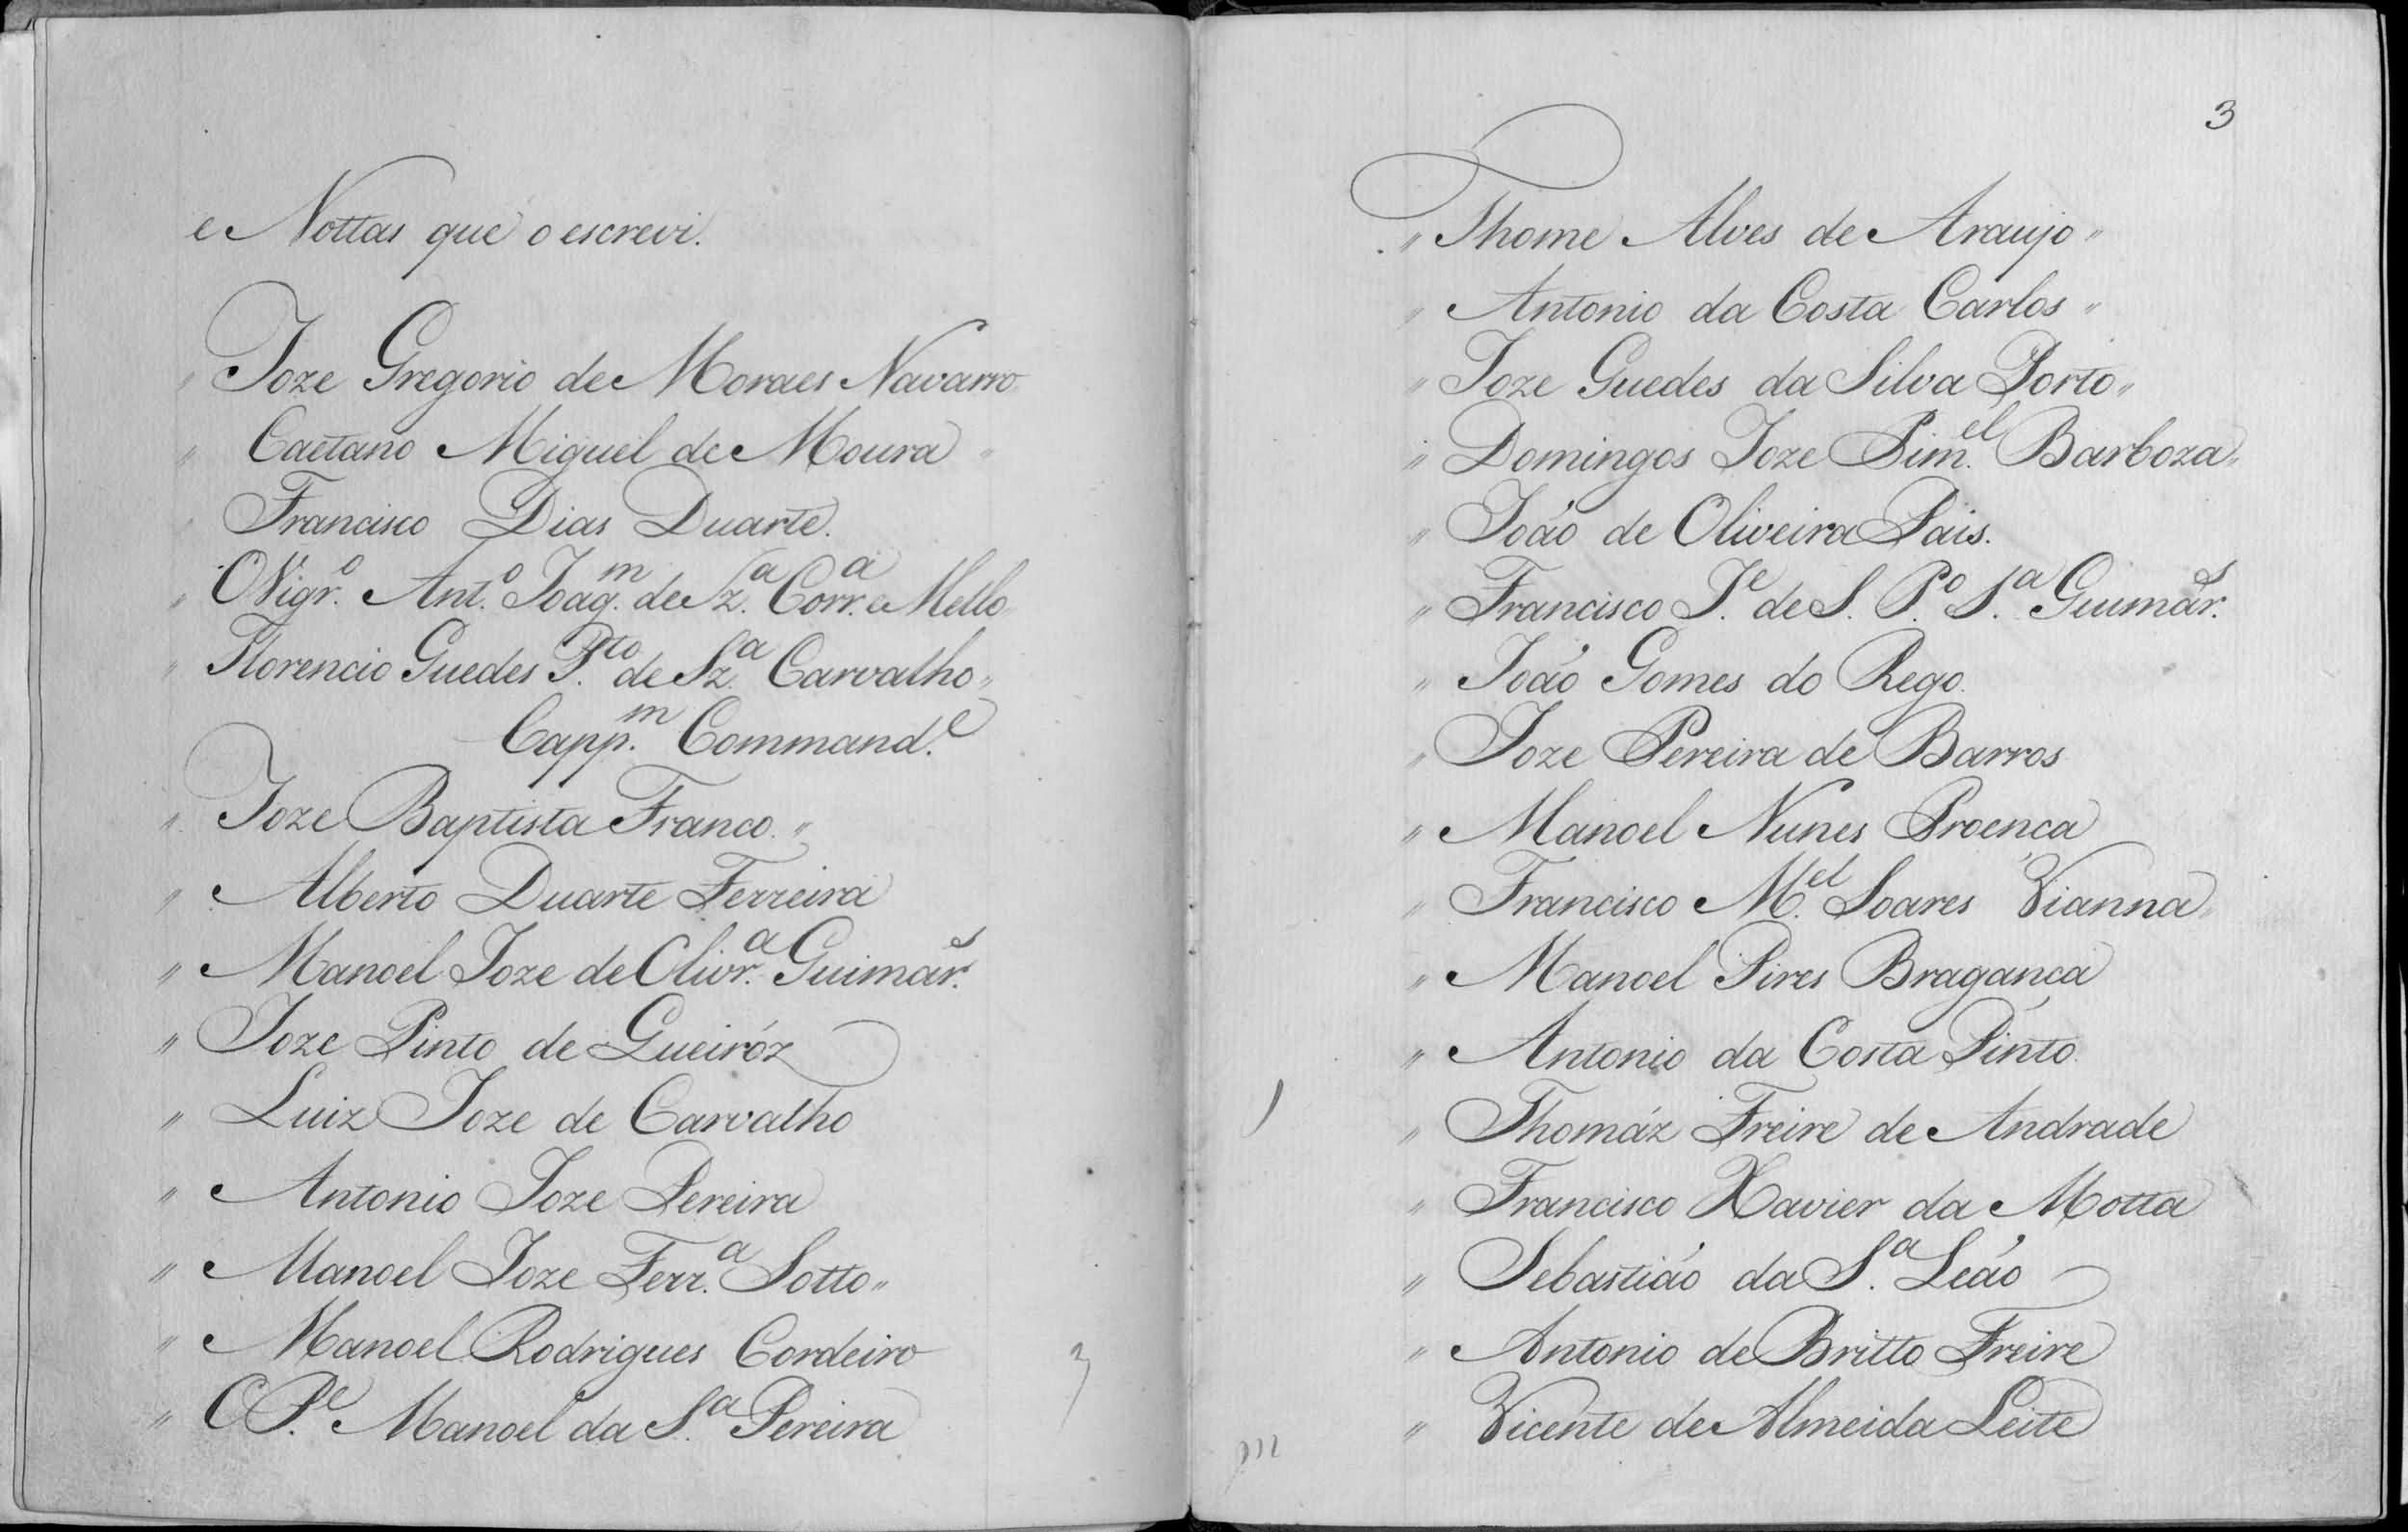 e Nottas que o escrevi.
" Joze Gregorio de Moraes Navarro
" Caetano Miguel de Moura "
" Francisco Dias Duarte.
" O Vigr.º Ant.º Joaq.m de Sz.a Corr.a e Mello
" Florencio Guedes P.to de Sz.a Carvalho "
Capp.m Command.e
" Joze Baptista Franco. "
" Alberto Duarte Ferreira
" Manoel Joze de Olivr.a Guimar.s
" Joze Pinto de Queiróz
" Luiz Joze de Carvalho
" Antonio Joze Pereira
" Manoel Joze Ferr.a Sotto "
" Manoel Rodrigues Cordeiro
" O P.e Manoel da S.a Pereira
3
" Thome Alves de Araujo "
" Antonio da Costa Carlos "
" Joze Guedes da Silva Porto "
" Domingos Joze Pim.el Barboza "
" João de Oliveira Pais.
" Francisco J.e de S. P.º S.a Guimar.s
" João Gomes do Rego.
" Joze Pereira de Barros
" Manoel Nunes Proença
" Francisco M.el Soares Vianna "
" Manoel Pires Bragança
" Antonio da Costa Pinto.
" Thomáz Freire de Andrade
" Francisco Xavier da Motta
" Sebastião da S.a Leão
" Antonio de Britto Freire
" Vicente de Almeida Leite